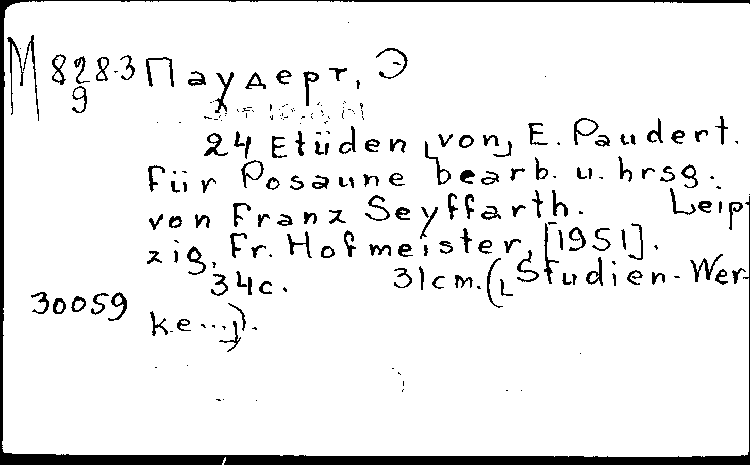 M 828-3 Паудерт, Э
9
24 Etüden [von] E. Paudert.
Für Posaune bearb. u. hrsg.
von Franz Seyffarth. Leip-
zig, Fr. Hofmeister, [1951].
34c. 31cm. ([Studien-Wer-
30059 ke...]).